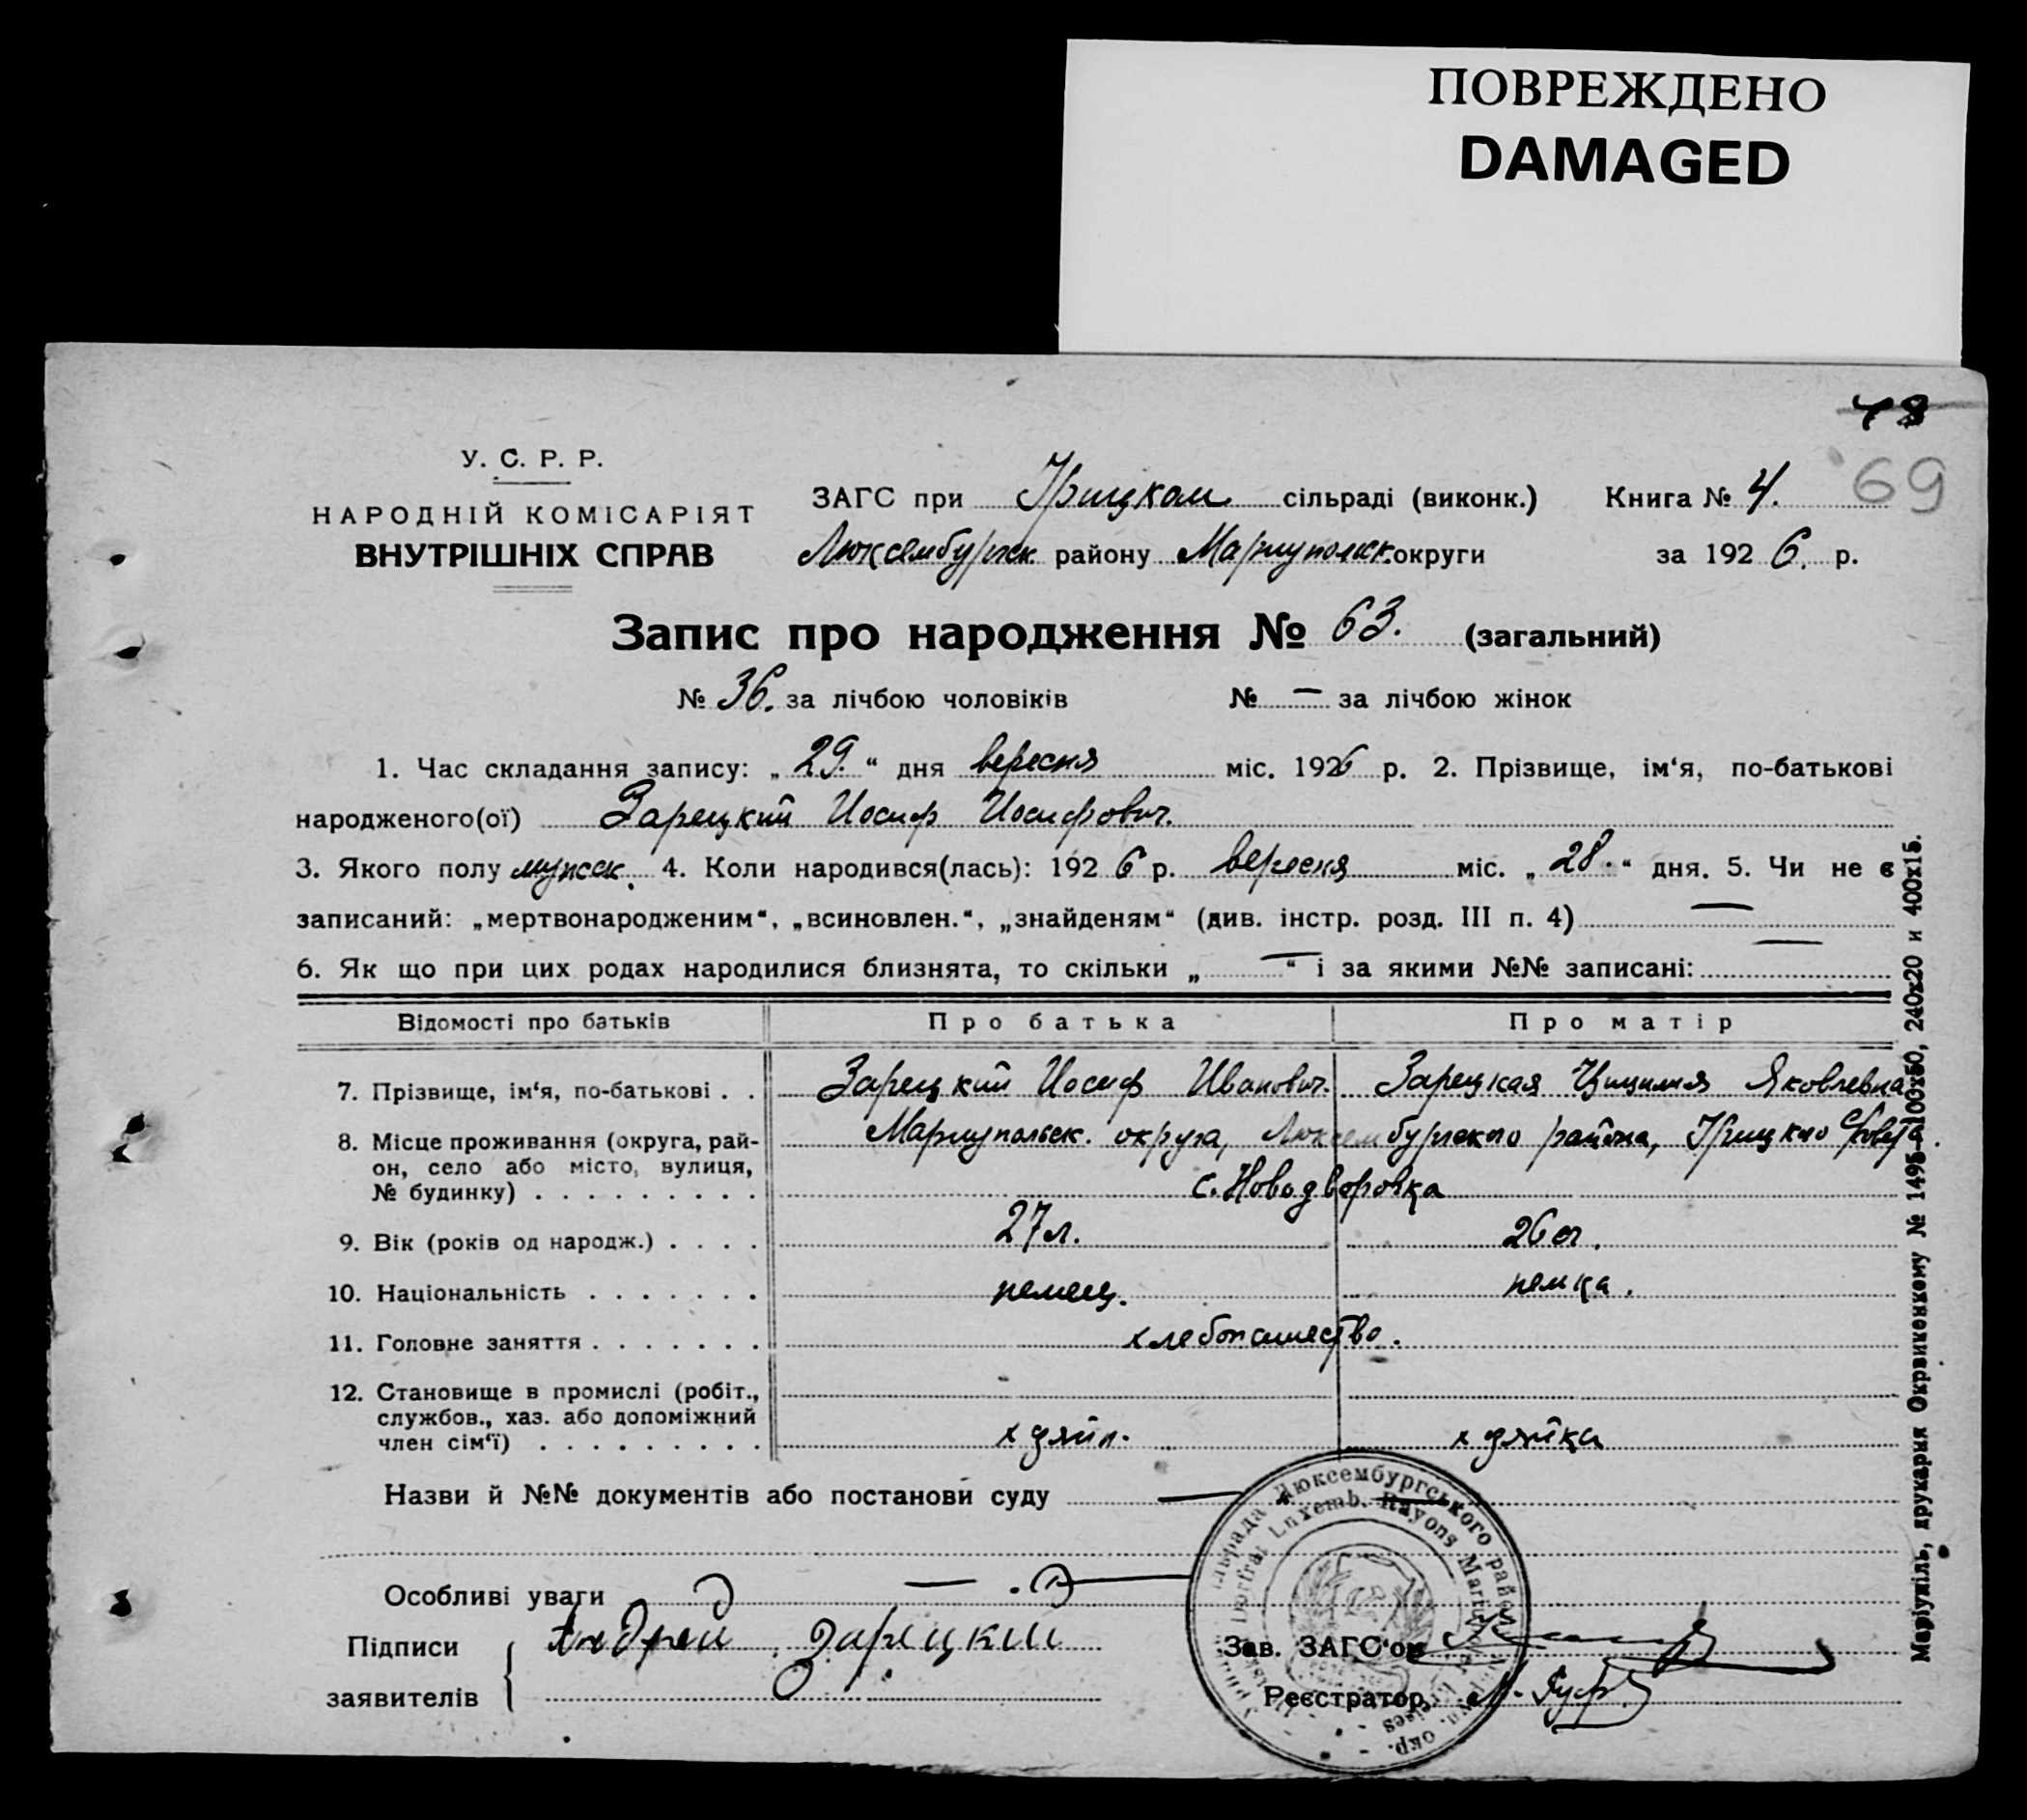 ПОВРЕЖДЕНО
DAMAGED
48
69
У. С. Р. Р.
НАРОДНІЙ КОМІСАРІЯТ
ВНУТРІШНІХ СПРАВ
ЗАГС при Грицком сільраді (виконк.) Книга № 4.
Люксембургск. району Мариупольск. округи за 1926. р.
Запис про народження № 63. (загальний)
№ 36. за лічбою чоловіків № — за лічбою жінок
1. Час складання запису: „29.“ дня вересня міс. 1926 р. 2. Прізвище, ім‘я, по-батькові
народженого(ої) Зарецкий Иосиф Иосифович.
3. Якого полу мужск. 4. Коли народився(лась): 1926 р. вересня міс. „28.“ дня. 5. Чи не є
записаний: „мертвонародженим“, „всиновлен.“, „знайденям“ (див. інстр. розд. III п. 4) —
6. Як що при цих родах народилися близнята, то скільки „—“ і за якими №№ записані: —
Відомості про батьків Про батька Про матір
7. Прізвище, ім‘я, по-батькові . . Зарецкий Иосиф Иванович. Зарецкая Цицилия Яковлевна
8. Місце проживання (округа, рай- Мариупольск. округа, Люксембургского района,
он, село або місто, вулиця,
№ будинку) . . . . . . . . . с. Новодворовка
9. Вік (років од народж.) . . . . 27 л. 26 л.
10. Національність . . . . . . . немец. немка.
11. Головне заняття . . . . . . . хлебопашество.
12. Становище в промислі (робіт.,
службов., хаз. або допоміжний
член сім‘ї) . . . . . . . . .
Назви й №№ документів або постанови суду —
Особливі уваги —
Підписи Андрей Зарецкий Зав. ЗАГС‘ом
заявителів Реєстратор
Люксембургського
Luxemb. Rayons
Маріупіль, друкарня Окрвиконкому № 1495-100х50, 240х20 и 400х15.